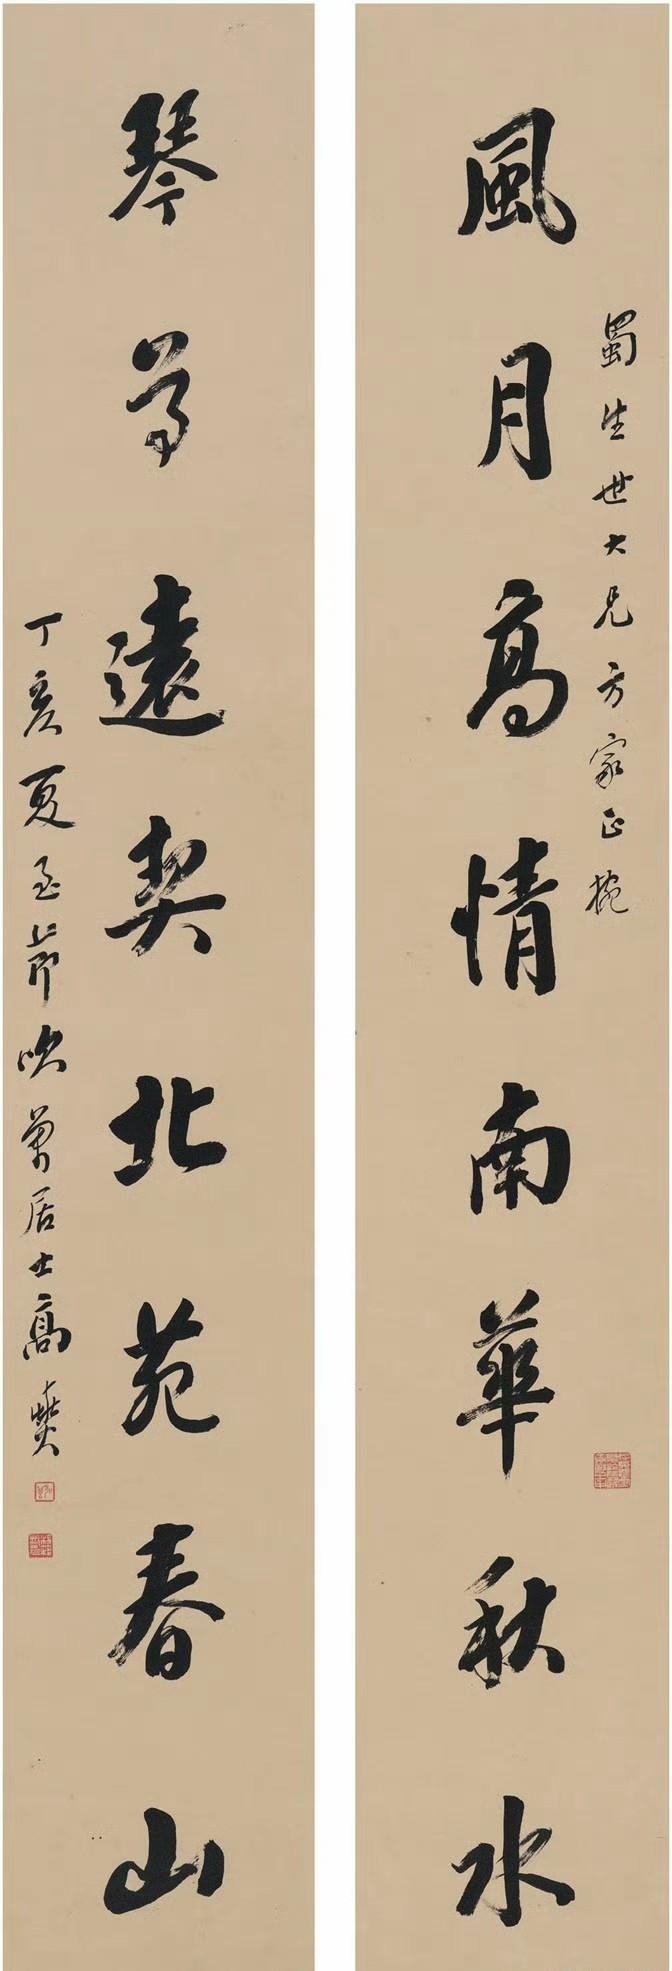 風月高情南華秋水
蜀生世大兄方家正捥
琴尊遠契北苑春山
丁亥夏至節吹萬居士高燮